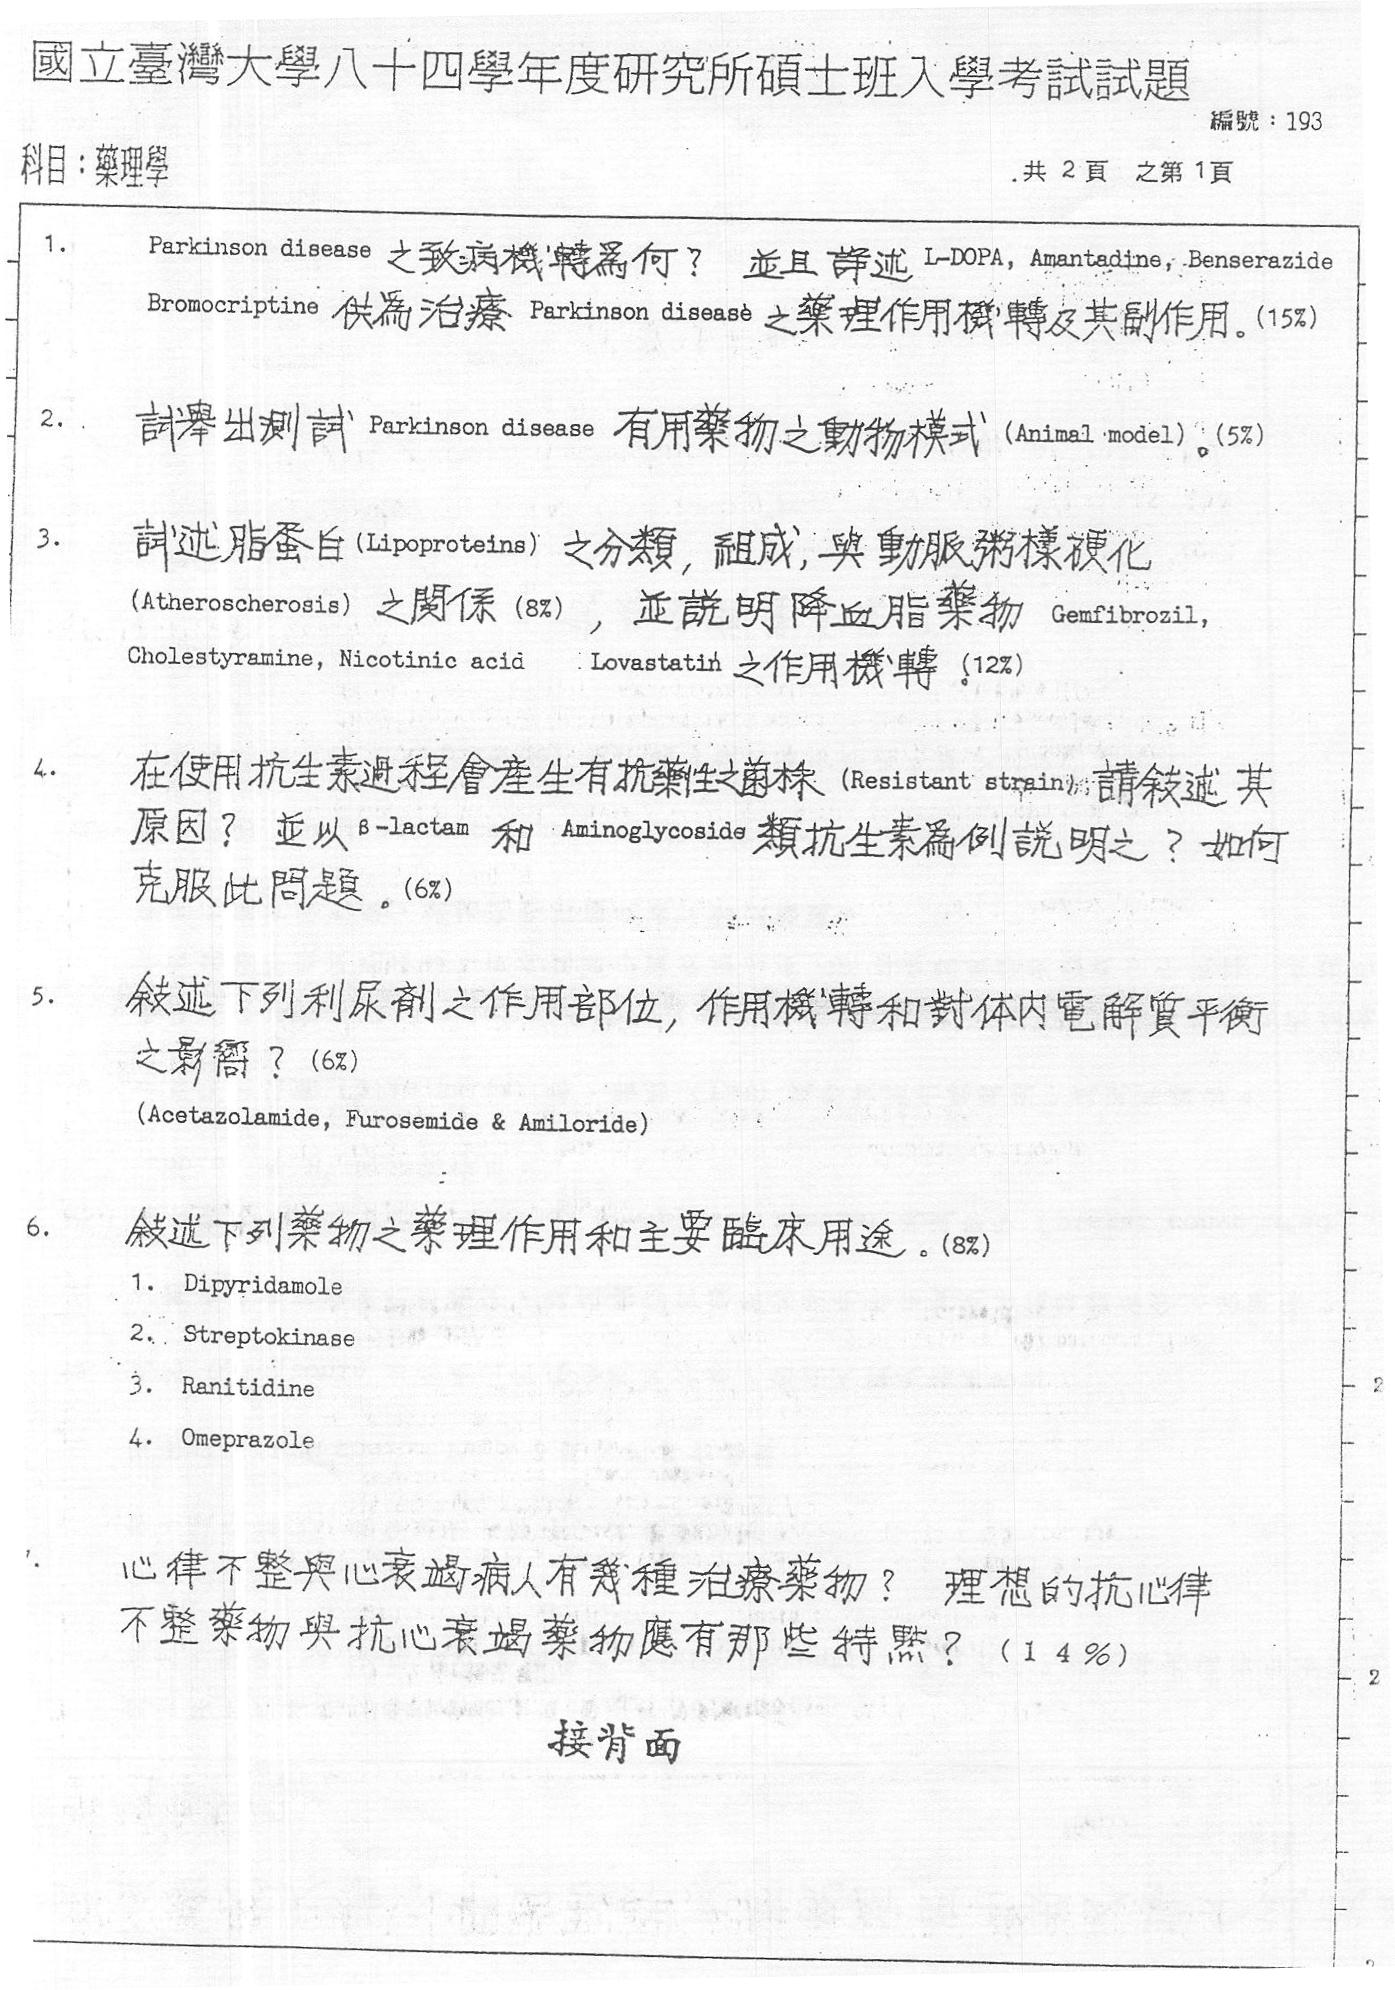 國立臺灣大學八十四學年度研究所碩士班入學考試試題
編號：193
科目：藥理學
共 2 頁 之第 1 頁
1. Parkinson disease 之致病機轉為何？ 並且詳述 L-DOPA, Amantadine, Benserazide
Bromocriptine 供為治療 Parkinson disease 之藥理作用機轉及其副作用。(15%)
2. 試舉出測試 Parkinson disease 有用藥物之動物模式 (Animal model)。(5%)
3. 試述脂蛋白 (Lipoproteins) 之分類, 組成, 與動脈粥樣硬化
(Atheroscherosis) 之關係 (8%) , 並說明降血脂藥物 Gemfibrozil,
Cholestyramine, Nicotinic acid Lovastatin 之作用機轉。(12%)
4. 在使用抗生素過程會產生有抗藥性之菌株 (Resistant strain) 請敍述其
原因？ 並以 β-lactam 和 Aminoglycoside 類抗生素為例說明之？如何
克服此問題。(6%)
5. 敍述下列利尿劑之作用部位, 作用機轉和對体內電解質平衡
之影響？ (6%)
(Acetazolamide, Furosemide & Amiloride)
6. 敍述下列藥物之藥理作用和主要臨床用途。(8%)
1. Dipyridamole
2. Streptokinase
3. Ranitidine
4. Omeprazole
心律不整與心衰竭病人有幾種治療藥物？ 理想的抗心律
不整藥物與抗心衰竭藥物應有那些特點？ (14%)
接背面
2
2